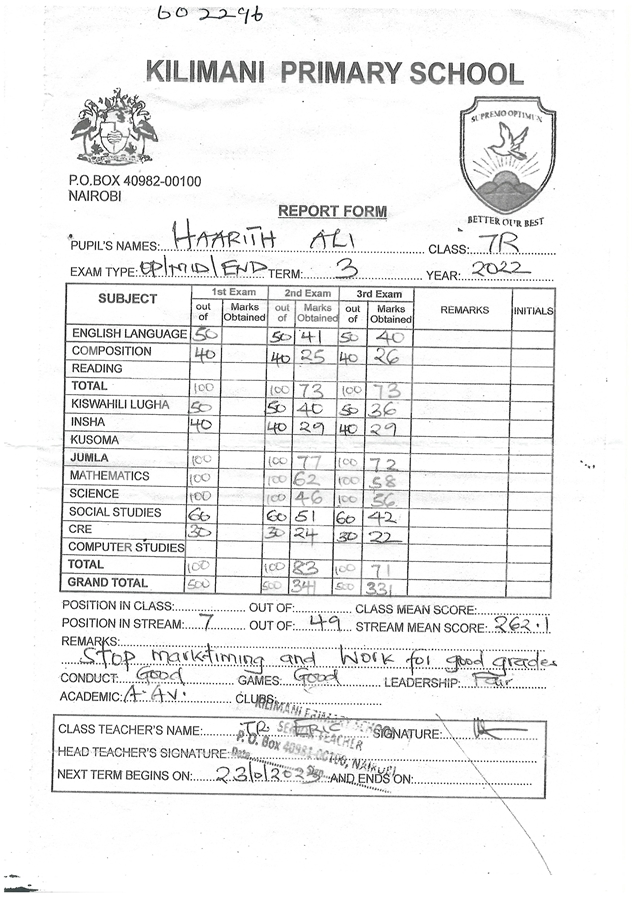 602296
KILIMANI PRIMARY SCHOOL
SUPREMO OPTIMUX
P.O.BOX 40982-00100
NAIROBI
BETTER OUR BEST
REPORT FORM
PUPIL'S NAMES: HAARITH ALI CLASS: 7R
EXAM TYPE: OP/MID/END TERM: 3 YEAR: 2022
SUBJECT 1st Exam 2nd Exam 3rd Exam REMARKS INITIALS
out of Marks Obtained out of Marks Obtained out of Marks Obtained
ENGLISH LANGUAGE 50 50 41 50 40
COMPOSITION 40 40 25 40 26
READING
TOTAL 100 100 73 100 73
KISWAHILI LUGHA 50 50 40 50 36
INSHA 40 40 29 40 29
KUSOMA
JUMLA 100 100 77 100 72
MATHEMATICS 100 100 62 100 58
SCIENCE 100 100 46 100 56
SOCIAL STUDIES 60 60 51 60 42
CRE 30 30 24 30 22
COMPUTER STUDIES
TOTAL 100 100 83 100 71
GRAND TOTAL 500 500 341 500 331
POSITION IN CLASS: OUT OF: CLASS MEAN SCORE:
POSITION IN STREAM: 7 OUT OF: 49 STREAM MEAN SCORE: 262.1
REMARKS:
Stop marktiming and Work for good grades
CONDUCT: Good GAMES: Good LEADERSHIP: Fair
ACADEMIC: A.Av. CLUBS:
KILIMANI PRIMARY SCHOOL
CLASS TEACHER'S NAME: TR ERIC SIGNATURE:
TEACHER
P.O. Box 40981-00100, NAIROBI
HEAD TEACHER'S SIGNATURE
Date Sign
NEXT TERM BEGINS ON: 2023 AND ENDS ON: